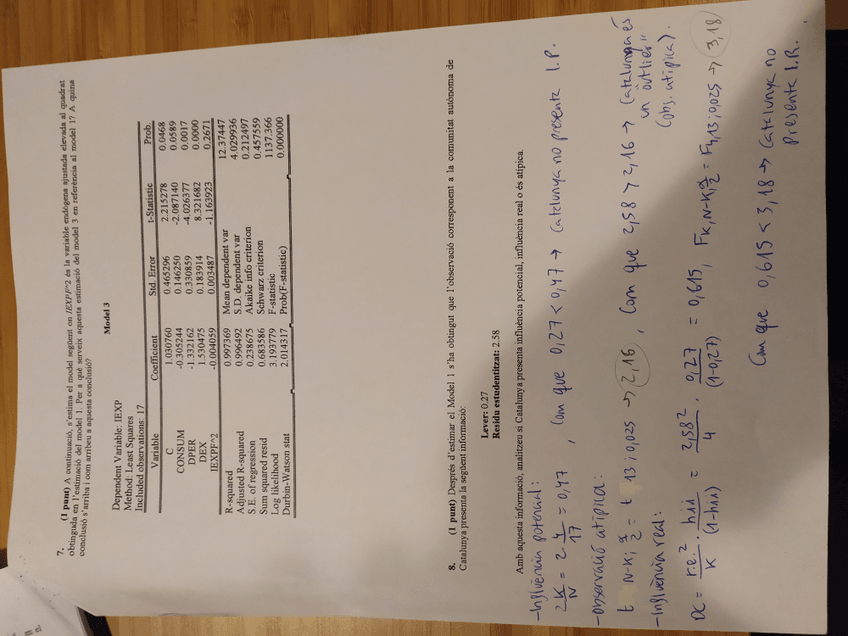 7. (1 punt) A continuació, s'estima el model següent on IEXPF^2 és la variable endògena ajustada elevada al quadrat
obtinguda en l'estimació del model 1. Per a què serveix aquesta estimació del model 3 en referència al model 1? A quina
conclusió s'arriba i com arribeu a aquesta conclusió?
Model 3
Dependent Variable: IEXP
Method: Least Squares
Included observations: 17
Variable Coefficient Std. Error t-Statistic Prob.
C 1.030760 0.465296 2.215278 0.0468
CONSUM -0.305244 0.146250 -2.087140 0.0589
DPER -1.332162 0.330859 -4.026377 0.0017
DEX 1.530475 0.183914 8.321682 0.0000
IEXPF^2 -0.004059 0.003487 -1.163923 0.2671
R-squared 0.997369 Mean dependent var 12.37447
Adjusted R-squared 0.996492 S.D. dependent var 4.029936
S.E. of regression 0.238675 Akaike info criterion 0.212497
Sum squared resid 0.683586 Schwarz criterion 0.457559
Log likelihood 3.193779 F-statistic 1137.366
Durbin-Watson stat 2.014317 Prob(F-statistic) 0.000000
8. (1 punt) Després d'estimar el Model 1 s'ha obtingut que l'observació corresponent a la comunitat autònoma de
Catalunya presenta la següent informació:
Lever: 0.27
Residu estudentitzat: 2.58
Amb aquesta informació, analitzeu si Catalunya presenta influència potencial, influència real o és atípica.
-Influència potencial:
2 K/N = 2 4/17 = 0,47 , Com que 0,27 < 0,47 → Catalunya no presenta I.P.
-observació atípica:
t N-K; α/2 = t 13; 0,025 → 2,16 , Com que 2,58 > 2,16 → Catalunya és
un "outlier"
(obs. atípica).
-Influència real:
DC = r.e.²/K · hii/(1-hii) = 2,58²/4 · 0,27/(1-0,27) = 0,615, F K, N-K; α/2 = F4,13; 0,025 → 3,18
Com que 0,615 < 3,18 → Catalunya no
presenta I.R.